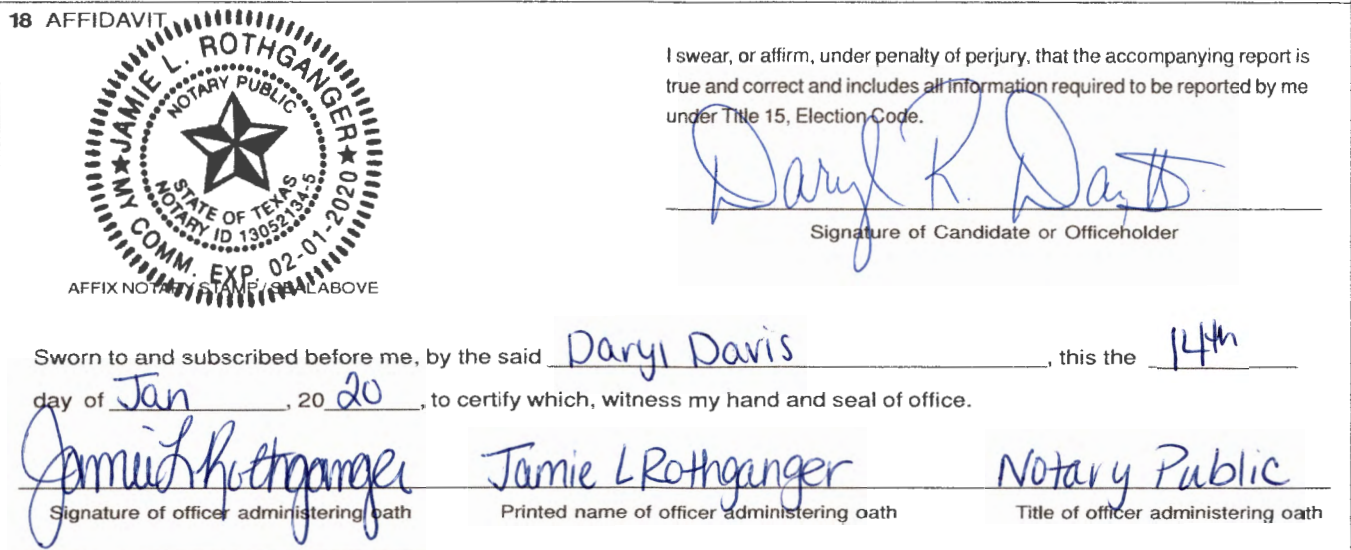 18 AFFIDAVIT
JAMIE L. ROTHGANGER
NOTARY PUBLIC
STATE OF TEXAS
NOTARY ID 13052134-5
MY COMM. EXP. 02-01-2020
AFFIX NOTARY STAMP / SEAL ABOVE
I swear, or affirm, under penalty of perjury, that the accompanying report is
true and correct and includes all information required to be reported by me
under Title 15, Election Code.
Daryl R. Davis
Signature of Candidate or Officeholder
Sworn to and subscribed before me, by the said Daryl Davis, this the 14th
day of Jan, 20 20, to certify which, witness my hand and seal of office.
Jamie L Rothganger Jamie L Rothganger Notary Public
Signature of officer administering oath Printed name of officer administering oath Title of officer administering oath